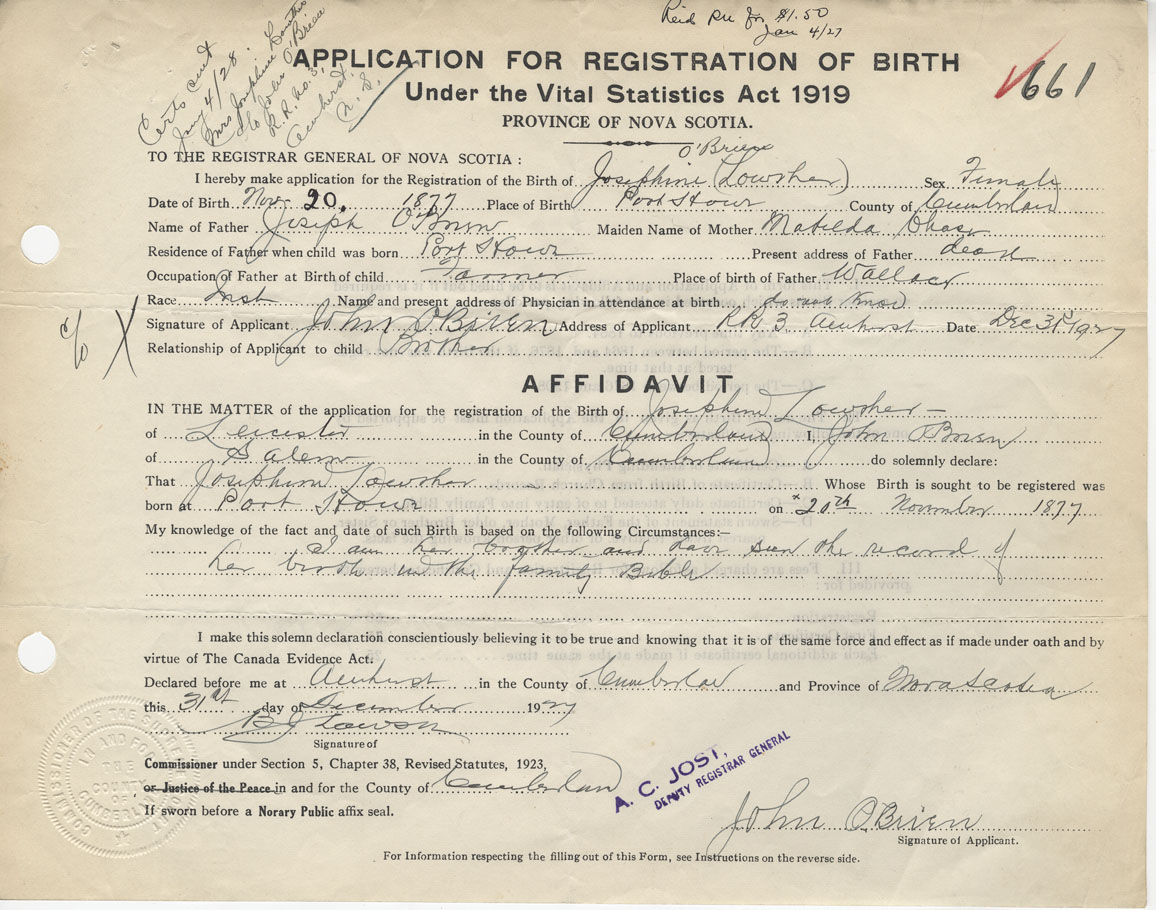 Reid Rec for $1.50
Jan 4/27
Certs sent
Jany 4/28.
Mrs Josephine Lowther
c/o John O'Brien
R.R. No. 3,
Amherst.
N. S.
661
APPLICATION FOR REGISTRATION OF BIRTH
Under the Vital Statistics Act 1919
PROVINCE OF NOVA SCOTIA.
O'Brien
TO THE REGISTRAR GENERAL OF NOVA SCOTIA :
I hereby make application for the Registration of the Birth of Josephine (Lowther) Sex Female
Date of Birth Nov 20, 1877 Place of Birth Port Howe County of Cumberland
Name of Father Joseph O'Brien Maiden Name of Mother Matilda Chase
Residence of Father when child was born Port Howe Present address of Father dead
Occupation of Father at Birth of child Farmer Place of birth of Father Wallace
Race Irish Name and present address of Physician in attendance at birth do not know
c/o X
Signature of Applicant John O'Brien Address of Applicant R.R. 3 Amherst Date Dec 31st 1927
Relationship of Applicant to child Brother
AFFIDAVIT
IN THE MATTER of the application for the registration of the Birth of Josephine Lowther
of Leicester in the County of Cumberland I, John O'Brien
of Salem in the County of Cumberland do solemnly declare:
That Josephine Lowther Whose Birth is sought to be registered was
born at Port Howe on x 20th November 1877
My knowledge of the fact and date of such Birth is based on the following Circumstances:—
I am her brother and have seen the record of
her birth in the family Bible
I make this solemn declaration conscientiously believing it to be true and knowing that it is of the same force and effect as if made under oath and by
virtue of The Canada Evidence Act.
Declared before me at Amherst in the County of Cumberland and Province of Nova Scotia
this 31st day of December 1927
Signature of
Commissioner under Section 5, Chapter 38, Revised Statutes, 1923,
or Justice of the Peace in and for the County of Cumberland
If sworn before a Norary Public affix seal.
A. C. JOST,
DEPUTY REGISTRAR GENERAL
John O'Brien
Signature of Applicant.
For Information respecting the filling out of this Form, see Instructions on the reverse side.